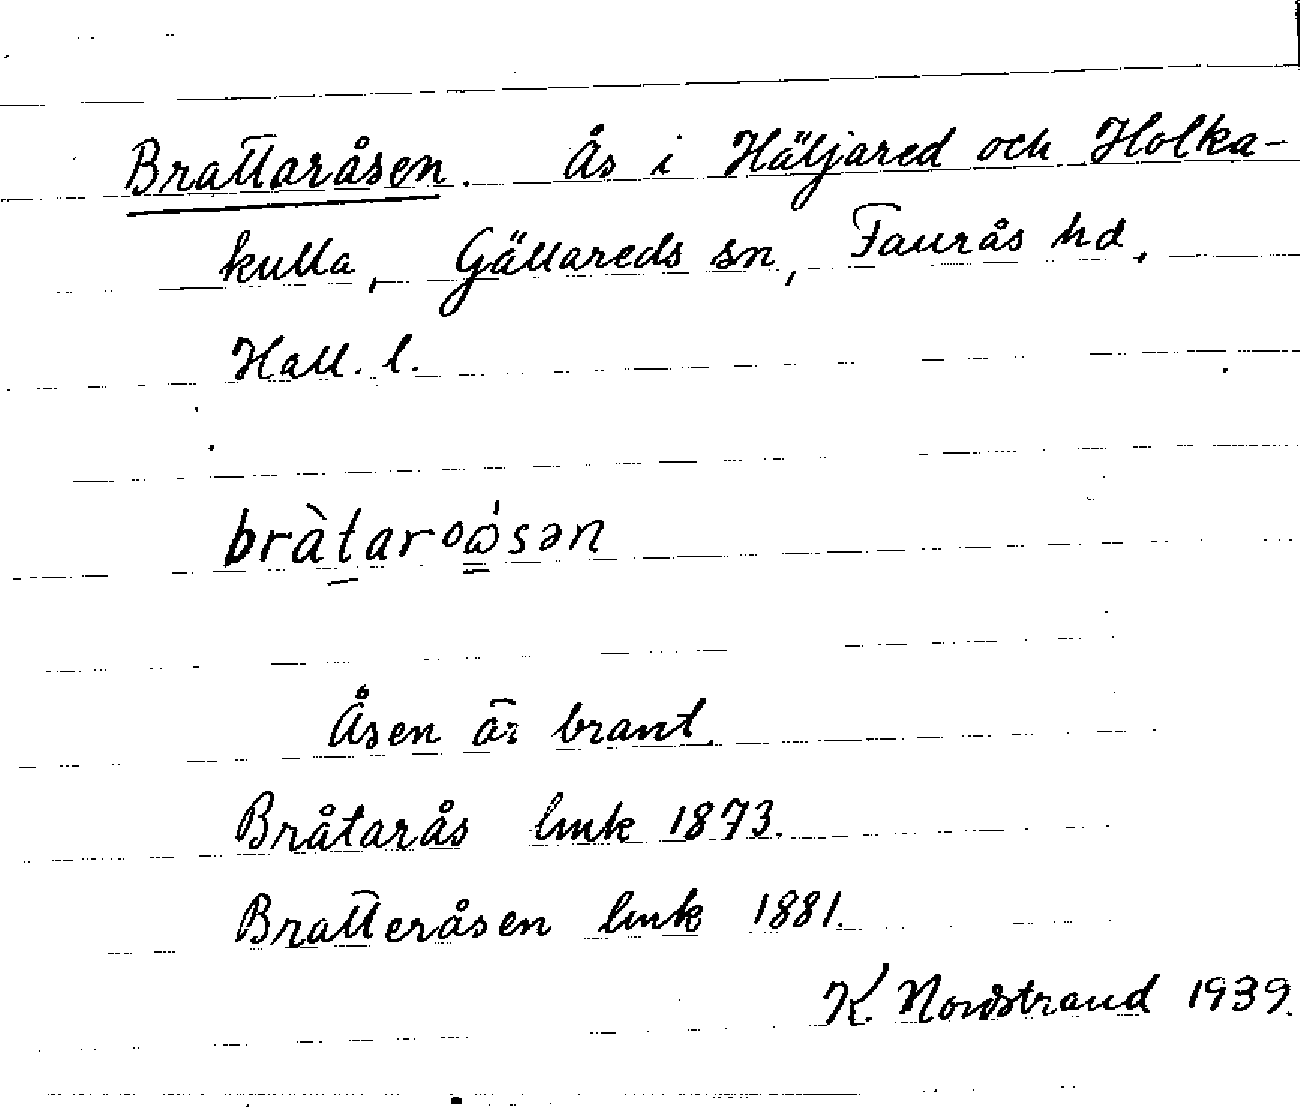 Brattaråsen. Ås i Häljared och Holka-
kulla, Gällareds sn, Faurås hd.
Hall. l.
bràtaroω̇sən
Åsen är brant.
Bråtarås lmk 1873.
Bratteråsen lmk 1881.
K. Nordstrand 1939.